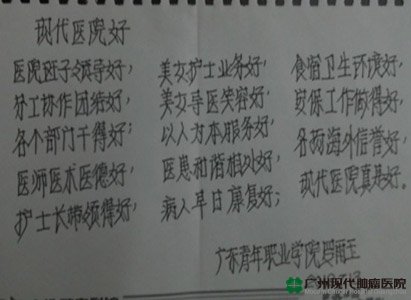 现代医院好
医院班子领导好，
分工协作团结好，
各个部门干得好；
医师医术医德好，
护士长带领得好，
美女护士业务好，
美女导医笑容好，
以人为本服务好，
医患和谐相处好，
病人早日康复好；
食宿卫生环境好，
安保工作做得好，
名扬海外信誉好，
现代医院真是好。
广东青年职业学院 段雨王
广州现代肿瘤医院